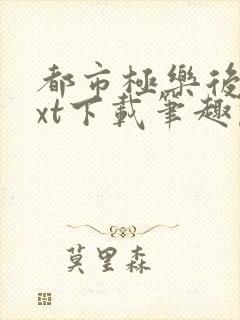 都市極樂後
xt下載筆趣
莫里森